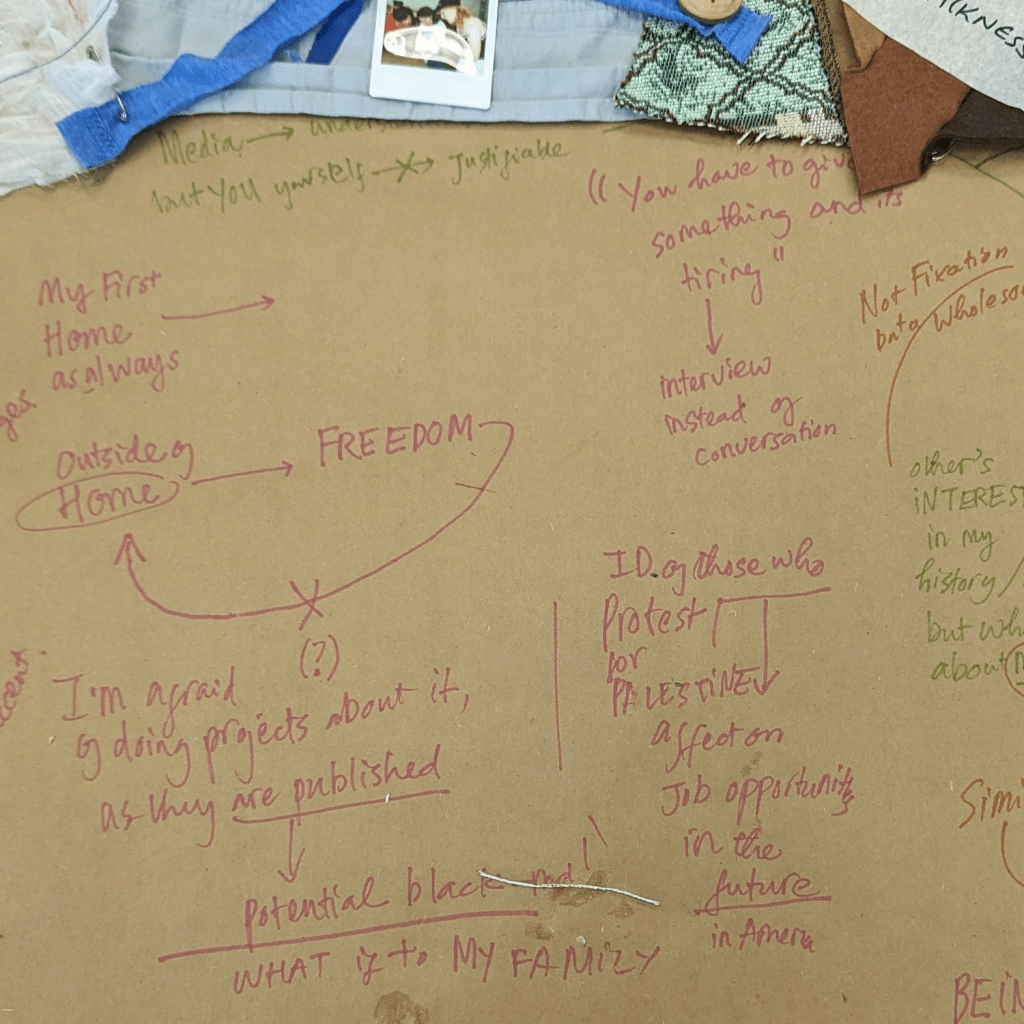 ICKNESS
Media → 
but you yourself → Justifiable
"You have to give
something and its
tiring"
↓
interview
instead of
conversation
My First
Home →
as always
Outside of
Home → FREEDOM
(?)
I'm afraid
of doing projects about it,
as they are published
↓
potential black
WHAT if to MY FAMILY
ID of those who
Protest/
for
PALESTINE
affect on
Job opportunity
in the
future
in America
Not Fixation
but a wholeso
other's
INTEREST
in my
history/
but wh
about
ges.
Simi
BEIN